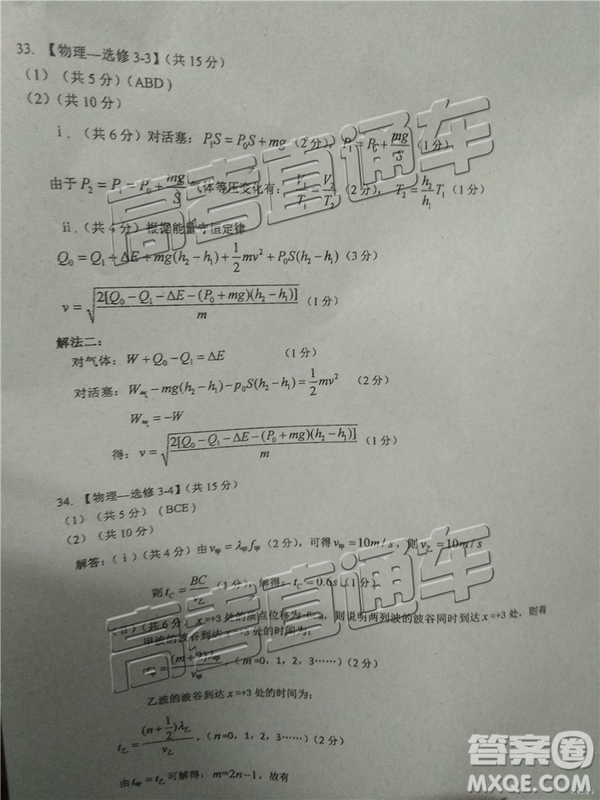 33. 【物理—选修 3-3】(共 15 分)
(1)(共 5 分)(ABD)
(2)(共 10 分)
ⅰ.(共 6 分)对活塞: P₁S = P₀S + mg (2 分), P₁ = P₀ + mg/S (1 分)
由于 P₂ = P₁ = P₀ + mg/S 气体等压变化有: V₁/T₁ = V₂/T₂ (2 分), T₂ = h₂/h₁ T₁ (1 分)
ⅱ.(共 4 分)根据能量守恒定律
Q₀ = Q₁ + ΔE + mg(h₂ − h₁) + 1/2 mv² + P₀S(h₂ − h₁) (3 分)
v = √(2[Q₀ − Q₁ − ΔE − (P₀ + mg)(h₂ − h₁)]/m) (1 分)
解法二:
对气体: W + Q₀ − Q₁ = ΔE (1 分)
对活塞: W气 − mg(h₂ − h₁) − p₀S(h₂ − h₁) = 1/2 mv² (2 分)
W气 = −W
得: v = √(2[Q₀ − Q₁ − ΔE − (P₀ + mg)(h₂ − h₁)]/m) (1 分)
34. 【物理—选修 3-4】(共 15 分)
(1)(共 5 分)(BCE)
(2)(共 10 分)
解答:(ⅰ)(共 4 分)由 v甲 = λ甲 f甲 (2 分), 可得 v甲 = 10m/s, 则 v乙 = 10m/s
则 t_C = BC/v乙 (1 分), 解得: t_C = 0.6s (1 分)
(共 6 分) x =+3 处的质点位移为 cm, 则说明两列波的波谷同时到达 x =+3 处, 则有
甲波的波谷到达 x =+3 处的时间为:
(m=0, 1, 2, 3……)(2 分)
乙波的波谷到达 x =+3 处的时间为:
t乙 = (n + 1/2)λ乙/v乙, (n=0, 1, 2, 3……)(2 分)
由 t甲 = t乙 可解得: m=2n−1, 故有
高考直通车
高考直通车
答案卷
MXQE.COM